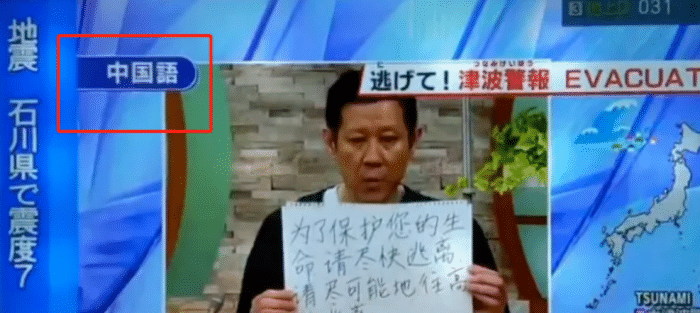 地震 石川県で震度7
中国語
3 地上D 031
に つなみけいほう
逃げて！津波警報 EVACUAT
为了保护您的生
命请尽快逃离
请尽可能地往高
TSUNAMI